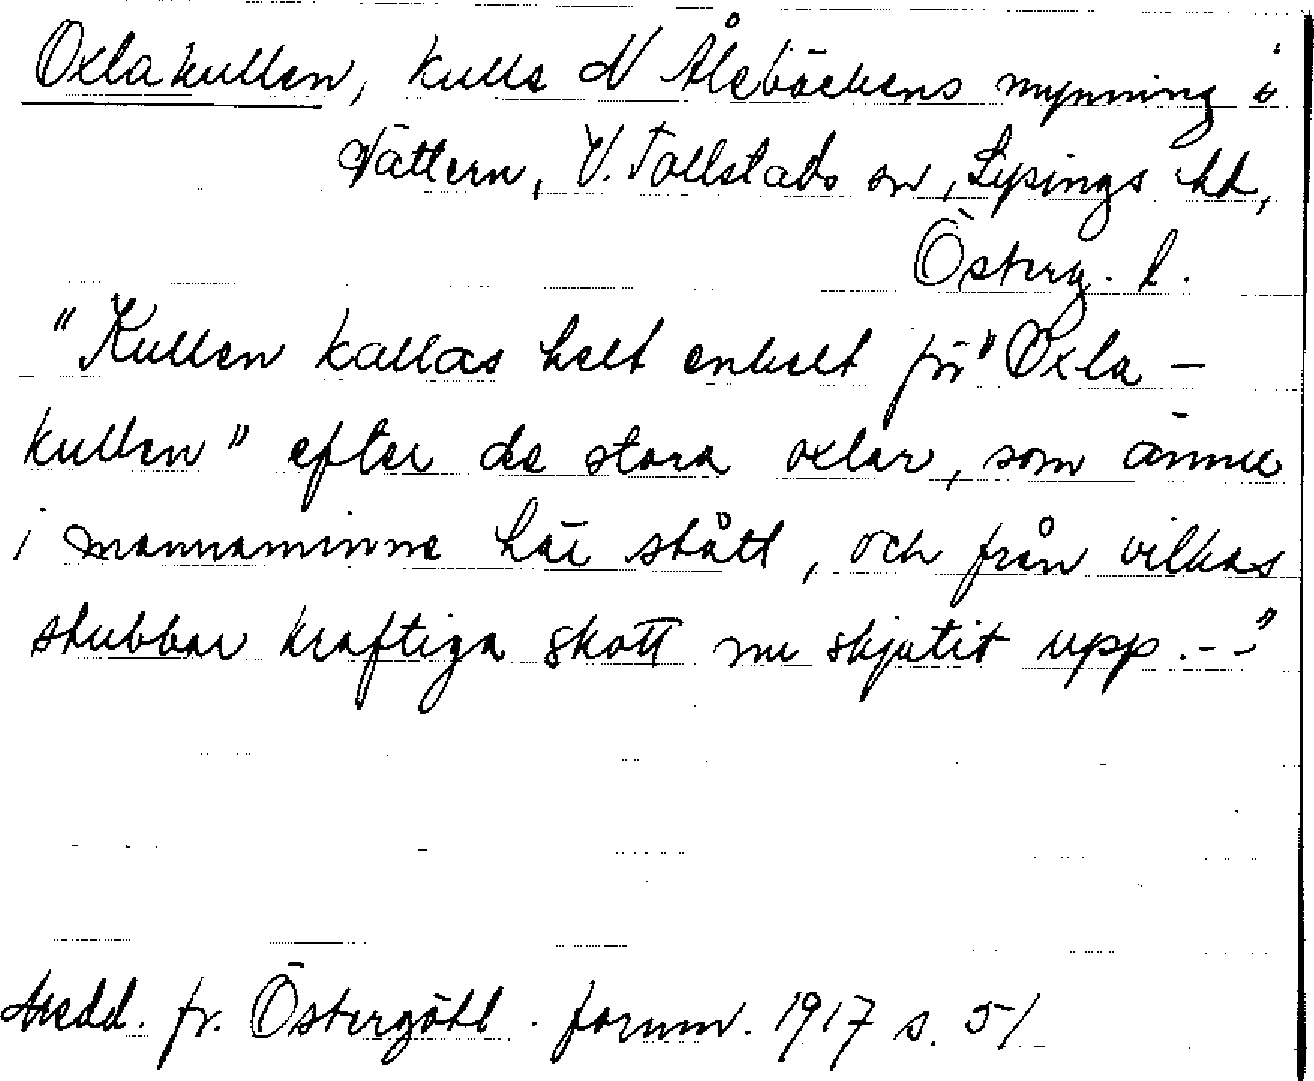 Oxlakullen, kulle N Ålebäckens mynning i
Vättern, V. Tollstads sn, Lysings hd,
Österg. l.
"Kullen kallas helt enkelt för "Oxla-
kullen" efter de stora oxlar, som ännu
i mannaminne här stått, och från vilkas
stubbar kraftiga skott nu skjutit upp.--"
Medd. fr. Östergötl. fornm. 1917 s. 51